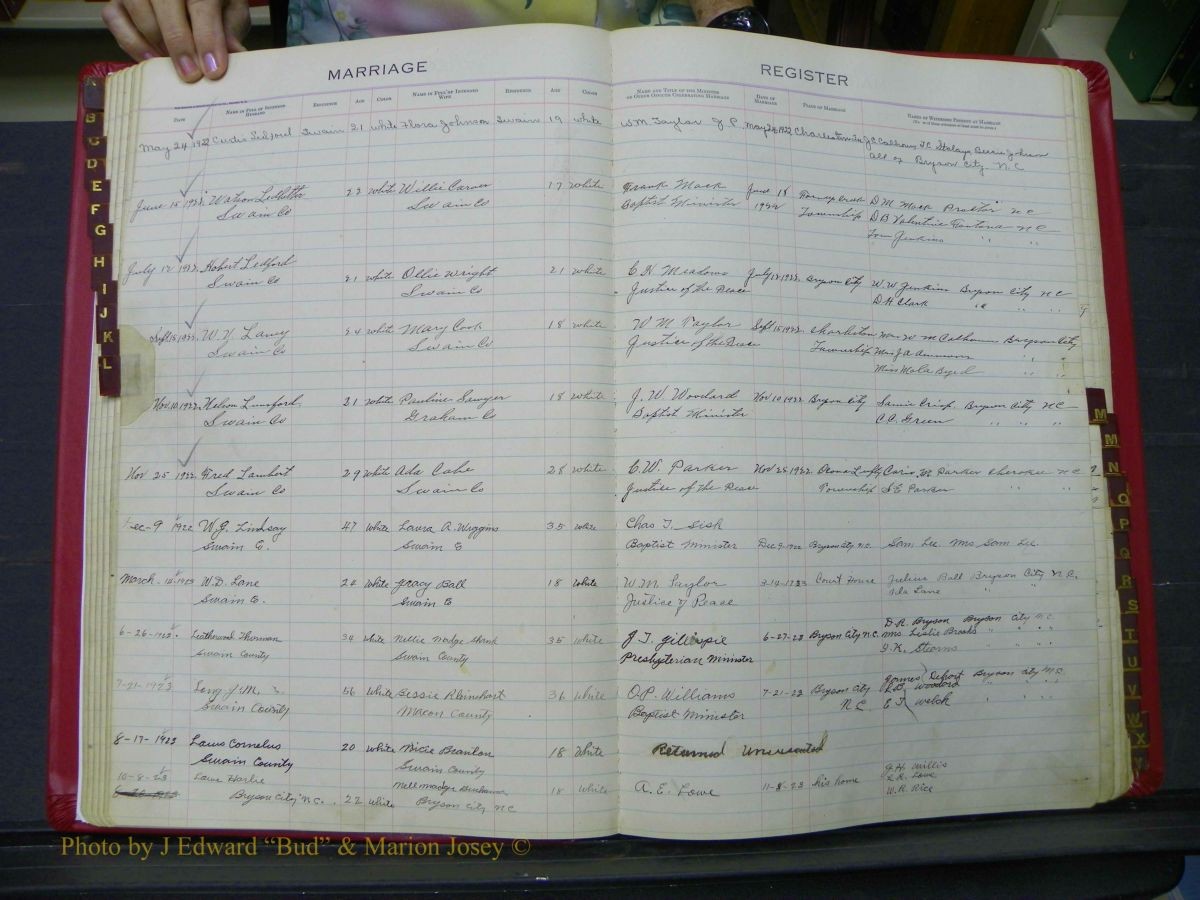 MARRIAGE REGISTER
DATE NAME IN FULL OF INTENDED HUSBAND RESIDENCE AGE COLOR NAME IN FULL OF INTENDED WIFE RESIDENCE AGE COLOR NAME AND TITLE OF THE MINISTER OR OTHER OFFICER CELEBRATING MARRIAGE DATE OF MARRIAGE PLACE OF MARRIAGE NAMES OF WITNESSES PRESENT AT MARRIAGE
May 24 1922 Swain 21 white Flora Johnson Swain 19 white W M Taylor J P May 24 1922 Charleston J C Calhoun Johnson
all of Bryson City N.C
June 15 1922 Watson Ledbetter 22 white Willie Carver 17 white Frank Mack June 18 Forneys Creek D M Mack Proctor N C
Swain Co Swain Co Baptist Minister 1922 Township D B Valentine Fontana N C
Tom Jenkins " "
July 12 1922 Robert Ledford 21 white Ollie Wright 21 white C H Meadows July 12 1922 Bryson City W W Jenkins Bryson City N C
Swain Co Swain Co Justice of the Peace D H Clark " " "
Sept 15 1922 W Y Laney 24 white Mary Cook 18 white W M Taylor Sept 15 1922 Charleston Mrs W M Calhoun Bryson City
Swain Co Swain Co Justice of the Peace Township Mrs J A " "
Miss Byrd " "
Nov 10 1922 Nelson Lunsford 21 white Pauline Sawyer 18 white J. W Woodard Nov 10 1922 Bryson City Crisp Bryson City N C
Swain Co Graham Co Baptist Minister C.C. Green " " "
Nov 25 1922 Fred Lambert 29 white Ada Cabe 28 white C. W. Parker Nov 25 1922 W. Parker Cherokee N C
Swain Co Swain Co Justice of the Peace Township S E Parker " "
Dec-9 1922 W. J. Lindsay 47 white Laura A. Wiggins 35 white Chas T. Sisk
Swain Co. Swain Co Baptist Minister Dec 9-1922 Bryson City N.C. Sam Lee Mrs Sam Lee
March 14 1923 W. D. Lane 24 white Gracy Ball 18 white W. M. Taylor 3-14-1923 Court House Julius Ball Bryson City N.C.
Swain Co. Swain Co Justice of Peace Ida Lane " "
D. R. Bryson Bryson City N.C
6-26-1923. Leatherwood Thurman 34 white Nellie Madge 35 white J. T. Gillespie 6-27-23 Bryson City N.C. Mrs Leslie Brooks " " "
Swain County Swain County Presbyterian Minister J. K. Stearns " " "
James Bryson City N.C.
7-21-1923 J. M. 56 white Bessie Rheinhart 36 white O. P. Williams 7-21-23 Bryson City R. B. Woodard " " "
Swain County Macon County Baptist Minister N.C. E. T. Welch " " "
8-17-1923 Laws Cornelus 20 white Branton 18 white Returned Unexecuted
Swain County Swain County
10-8-23 Lowe Harlie Nell Madge 18 white A. E. Lowe 11-8-23 his home J. H. Willis
Bryson City N.C. 22 white Bryson City N.C Lowe
W. R. Rice
A
B
C
D
E
F
G
H
I
J
K
L
M
M
N
O
P
Q
R
S
T
U
V
W
X
Y
Photo by J Edward "Bud" & Marion Josey ©